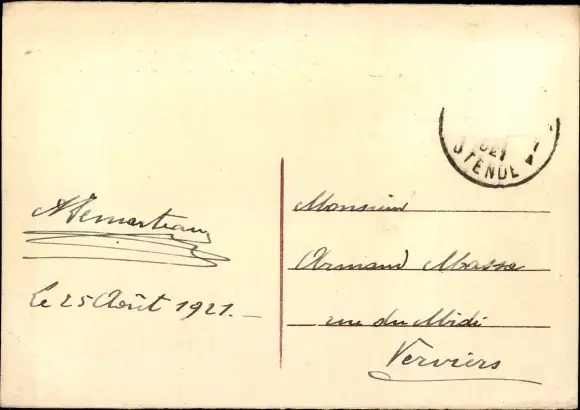 ADemarteau
Le 25 Août 1921. –
921
OSTENDE
Monsieur
Armand Masse
rue du Midi
Verviers